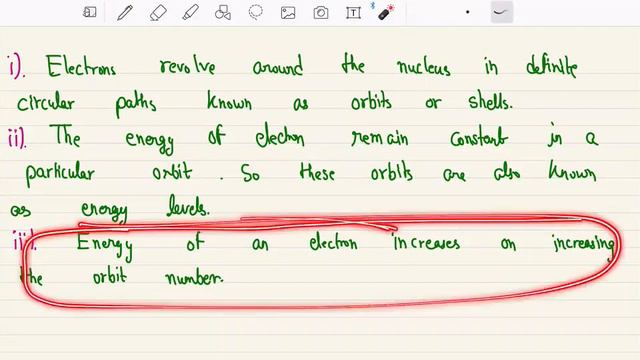 i). Electrons revolve around the nucleus in definite
circular paths known as orbits or shells.
ii). The energy of electron remain constant in a
particular orbit. So these orbits are also known
as energy levels.
iii). Energy of an electron increases on increasing
the orbit number.